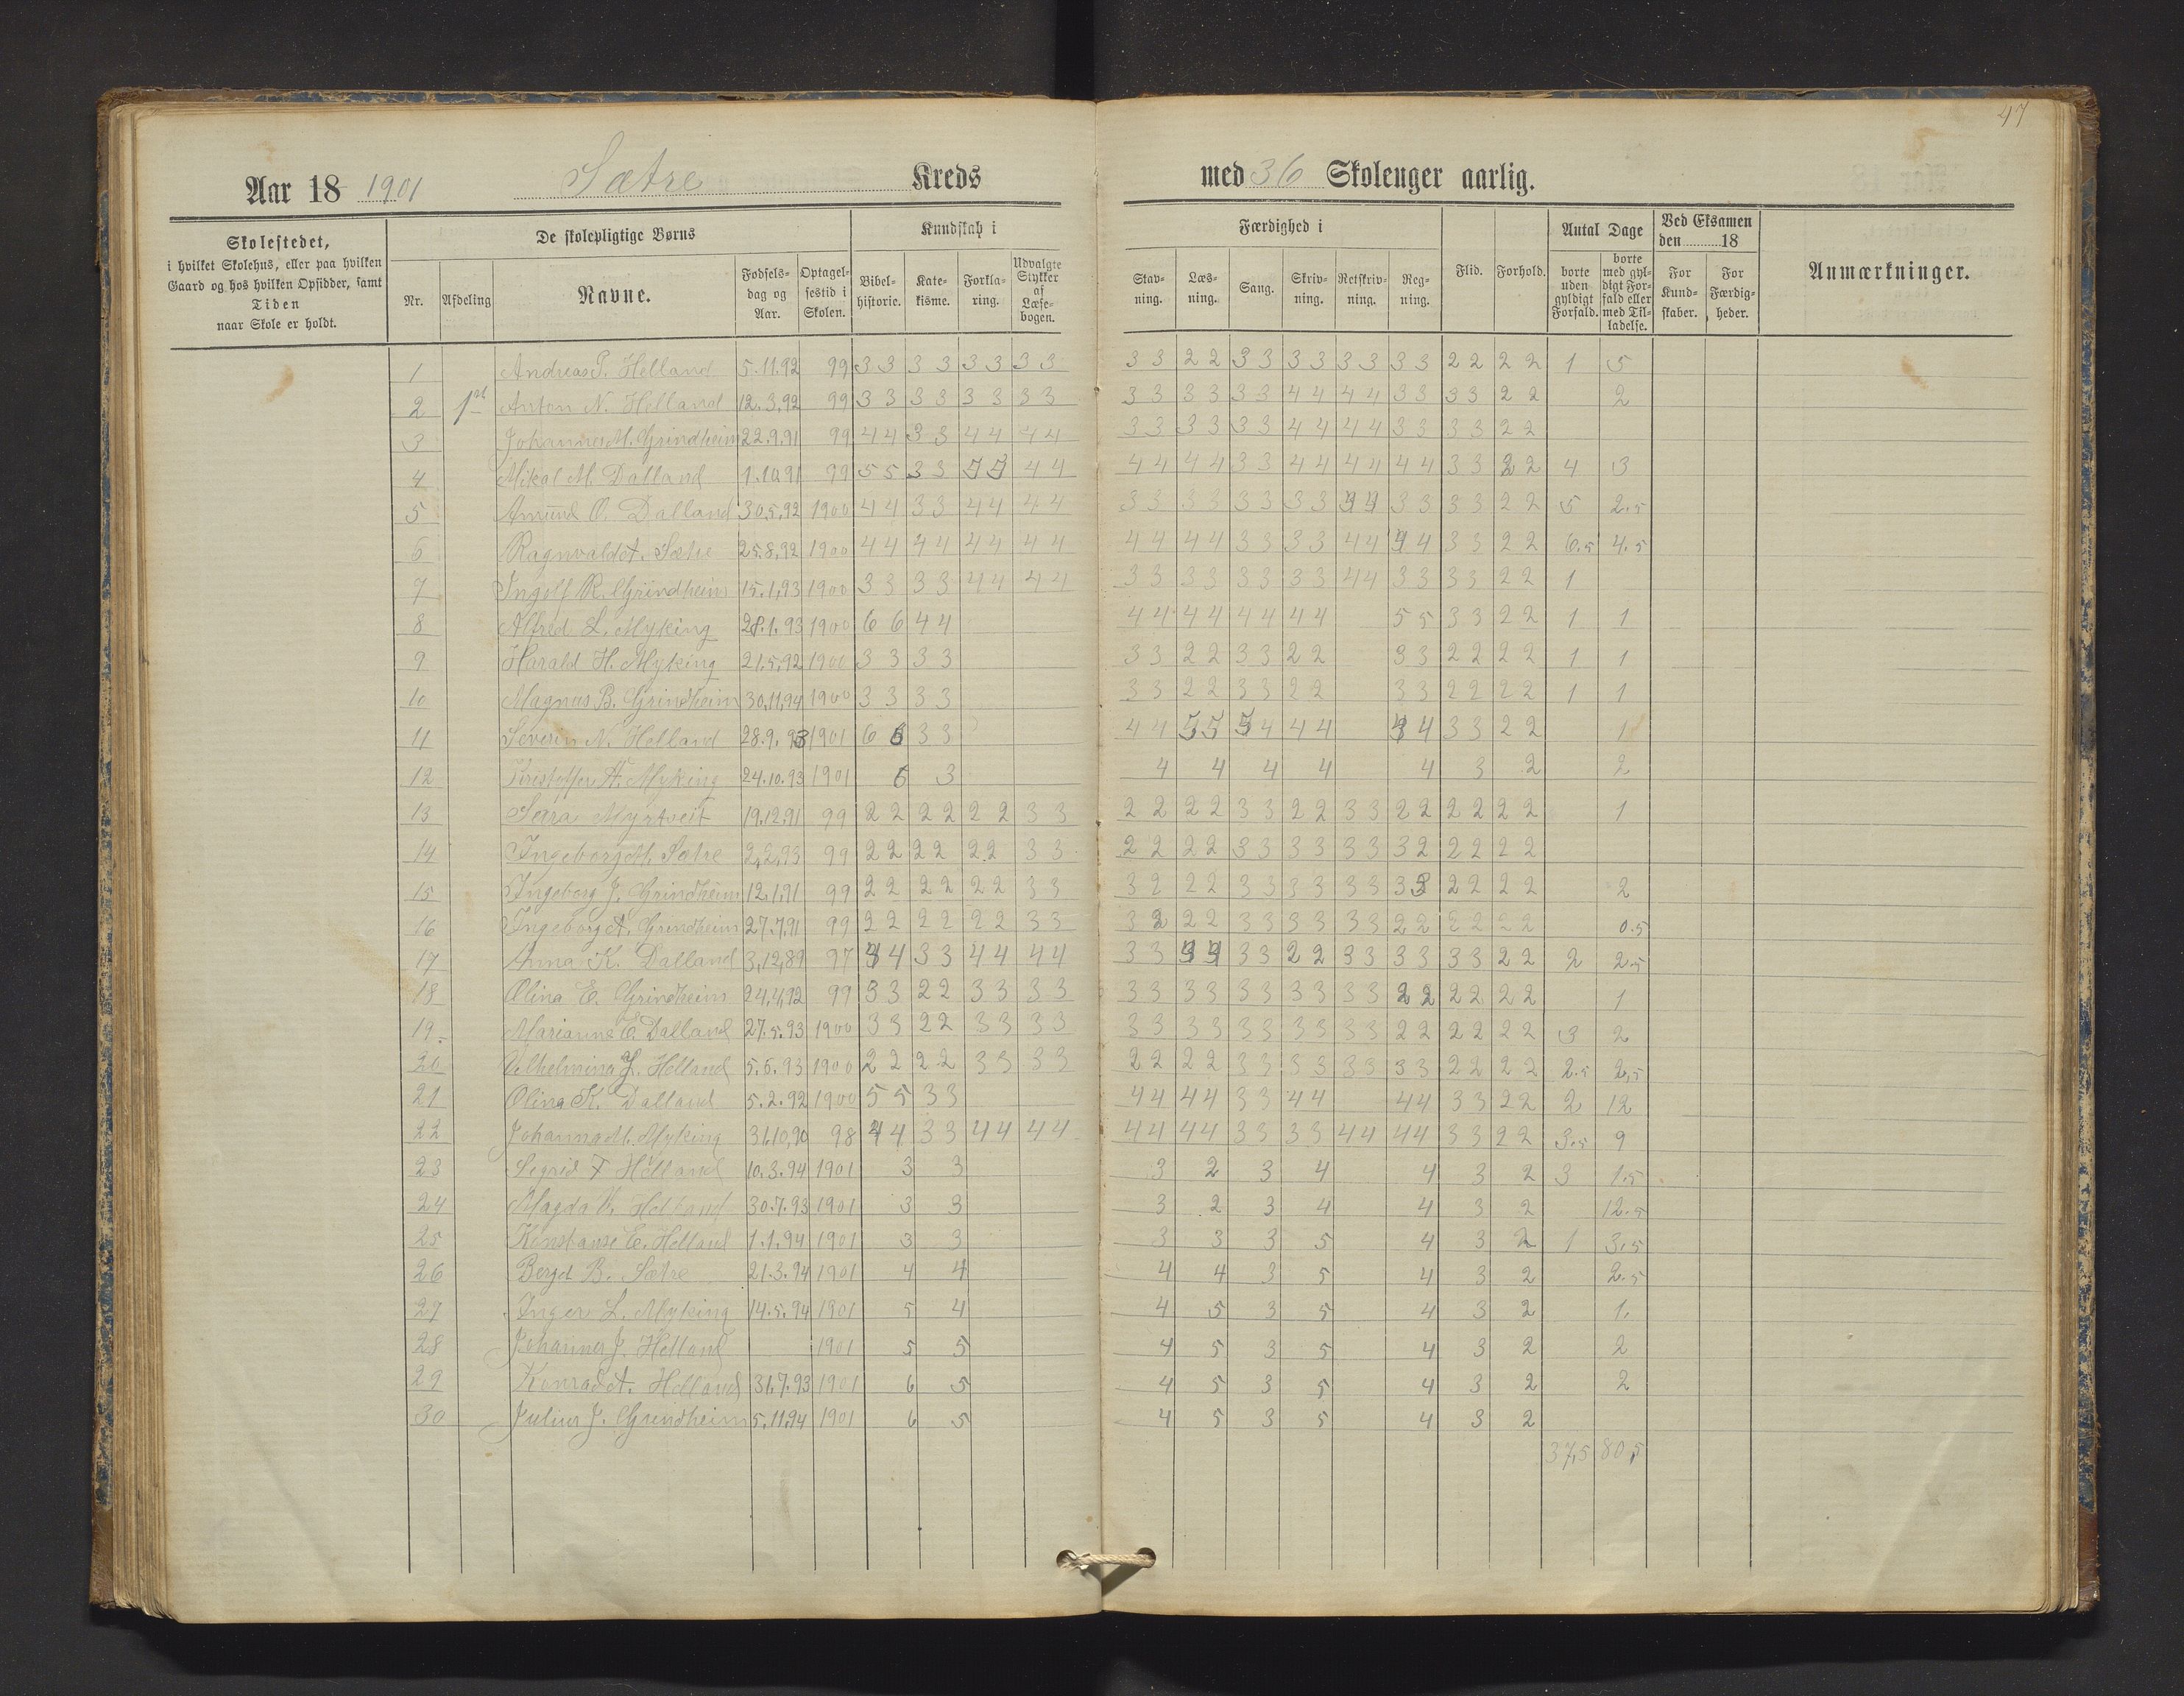 47
Aar 18 1901 Sætre Kreds med 36 Skoleuger aarlig.
Skolestedet, i hvilket Skolehus, eller paa hvilken Gaard og hos hvilken Opsidder, samt Tiden naar Skole er holdt.
De skolepligtige Børns
Nr. Afdeling Navne. Fødselsdag og Aar. Optagelsestid i Skolen.
Kundskab i
Bibelhistorie. Katekisme. Forklaring. Udvalgte Stykker af Læsebogen.
Færdighed i
Stavning. Læsning. Sang. Skrivning. Retskrivning. Regning.
Flid. Forhold.
Antal Dage
borte uden gyldigt Forfald. borte med gyldigt Forfald eller med Tilladelse.
Ved Eksamen den 18
For Kundskaber. For Færdigheder.
Anmærkninger.
1 Andreas P. Helland 5.11.92 99 3 3 3 3 3 3 3 3 3 3 2 2 3 3 3 3 3 3 3 3 2 2 2 2 1 5
2 1st Anton N. Helland 12.3.92 99 3 3 3 3 3 3 3 3 3 3 3 3 3 3 4 4 4 4 3 3 3 3 2 2 2
3 Johannes M. Grindheim 22.9.91 99 4 4 3 3 4 4 4 4 3 3 3 3 3 3 4 4 4 4 3 3 3 3 2 2
4 Mikal M. Dalland 1.10.91 99 5 5 3 3 5 5 4 4 4 4 4 4 3 3 4 4 4 4 4 4 3 3 2 2 4 3
5 Amund O. Dalland 30.5.92 1900 4 4 3 3 4 4 4 4 3 3 3 3 3 3 3 3 4 4 3 3 3 3 2 2 5 2.5
6 Ragnvald A. Sætre 25.8.92 1900 4 4 4 4 4 4 4 4 4 4 4 4 3 3 3 3 4 4 4 4 3 3 2 2 6.5 4.5
7 Ingolf R. Grindheim 15.1.93 1900 3 3 3 3 4 4 4 4 3 3 3 3 3 3 3 3 4 4 3 3 3 3 2 2 1
8 Alfred L. Myking 28.1.93 1900 6 6 4 4 4 4 4 4 4 4 4 4 5 5 3 3 2 2 1 1
9 Harald H. Myking 21.5.92 1900 3 3 3 3 3 3 2 2 3 3 2 2 3 3 2 2 2 2 1 1
10 Magnus B. Grindheim 30.11.94 1900 3 3 3 3 3 3 2 2 3 3 2 2 3 3 2 2 2 2 1 1
11 Severin N. Helland 28.9.93 1901 6 6 3 3 4 4 5 5 5 4 4 4 4 4 3 3 2 2 1
12 Kristoffer A. Myking 24.10.93 1901 6 3 4 4 4 4 4 3 2 2
13 Sara Myrtveit 19.12.91 99 2 2 2 2 2 2 3 3 2 2 2 2 3 3 2 2 3 3 2 2 2 2 2 2 1
14 Ingeborg M. Sætre 2.2.93 99 2 2 2 2 2 2 3 3 2 2 2 2 3 3 3 3 3 3 3 2 2 2 2 2
15 Ingeborg J. Grindheim 12.1.91 99 2 2 2 2 2 2 3 3 3 2 2 2 3 3 3 3 3 3 3 3 2 2 2 2 2
16 Ingeborg A. Grindheim 27.7.91 99 2 2 2 2 2 2 3 3 3 2 2 2 3 3 3 3 3 3 2 2 2 2 2 2 0.5
17 Anna K. Dalland 3.12.89 97 4 4 3 3 4 4 4 4 3 3 3 3 3 3 2 2 3 3 3 3 3 3 2 2 2 2.5
18 Olina E. Grindheim 24.4.92 99 3 3 2 2 3 3 3 3 3 3 3 3 3 3 3 3 3 3 2 2 2 2 2 2 1
19. Marianne E. Dalland 27.5.93 1900 3 3 2 2 3 3 3 3 3 3 3 3 3 3 3 3 3 3 2 2 2 2 2 2 3 2
20 Vilhelmina L. Helland 5.6.93 1900 2 2 2 2 3 3 3 3 2 2 2 2 3 3 3 3 3 3 3 3 2 2 2 2 2.5 2.5
21 Olina K. Dalland 5.2.92 1900 5 5 3 3 4 4 4 4 3 3 4 4 4 4 3 3 2 2 2 12
22 Johanna M. Myking 31.10.90 98 4 4 3 3 4 4 4 4 4 4 4 4 3 3 3 3 4 4 4 4 3 3 2 2 3.5 9
23 Segrid T Helland 10.3.94 1901 3 3 3 2 3 4 4 3 2 3 1.5
24 Magda Helland 30.7.93 1901 3 3 3 2 3 4 4 3 2 12.5
25 Konstanse E. Helland 1.1.94 1901 3 3 3 3 3 5 4 3 2 1 3.5
26 Berget B. Sætre 21.3.94 1901 4 4 4 4 3 5 4 3 2 2.5
27 Inger L. Myking 14.5.94 1901 5 4 4 5 3 5 4 3 2 1.
28 Johannes J. Helland 1901 5 5 4 5 3 5 4 3 2 2
29 Konrad A. Helland 31.7.93 1901 6 5 4 5 3 5 4 3 2 2
30 Julius J. Grindheim 5.11.94 1901 6 5 4 5 3 5 4 3 2
37,5 80,5